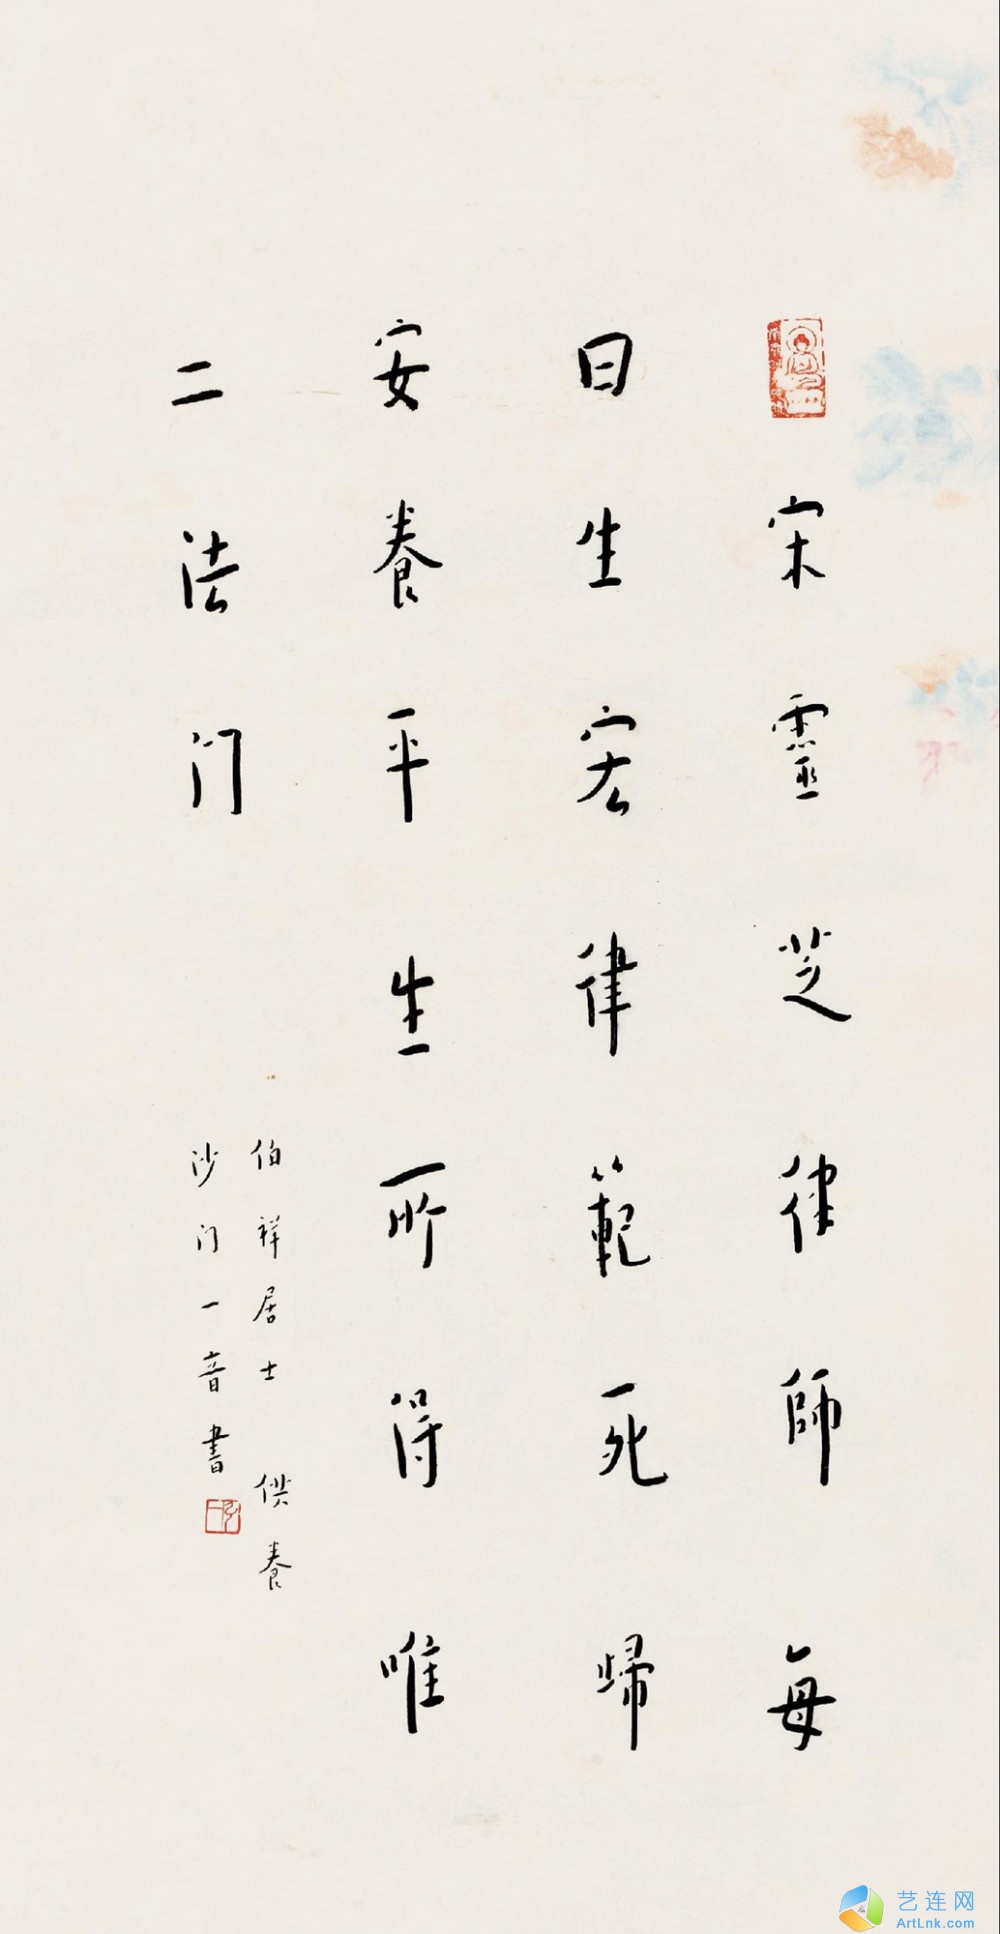 宋靈芝律師每
曰生宏律範死歸
安養平生所得唯
二法门
伯祥居士供養
沙门一音書
艺连网
ArtLnk.com